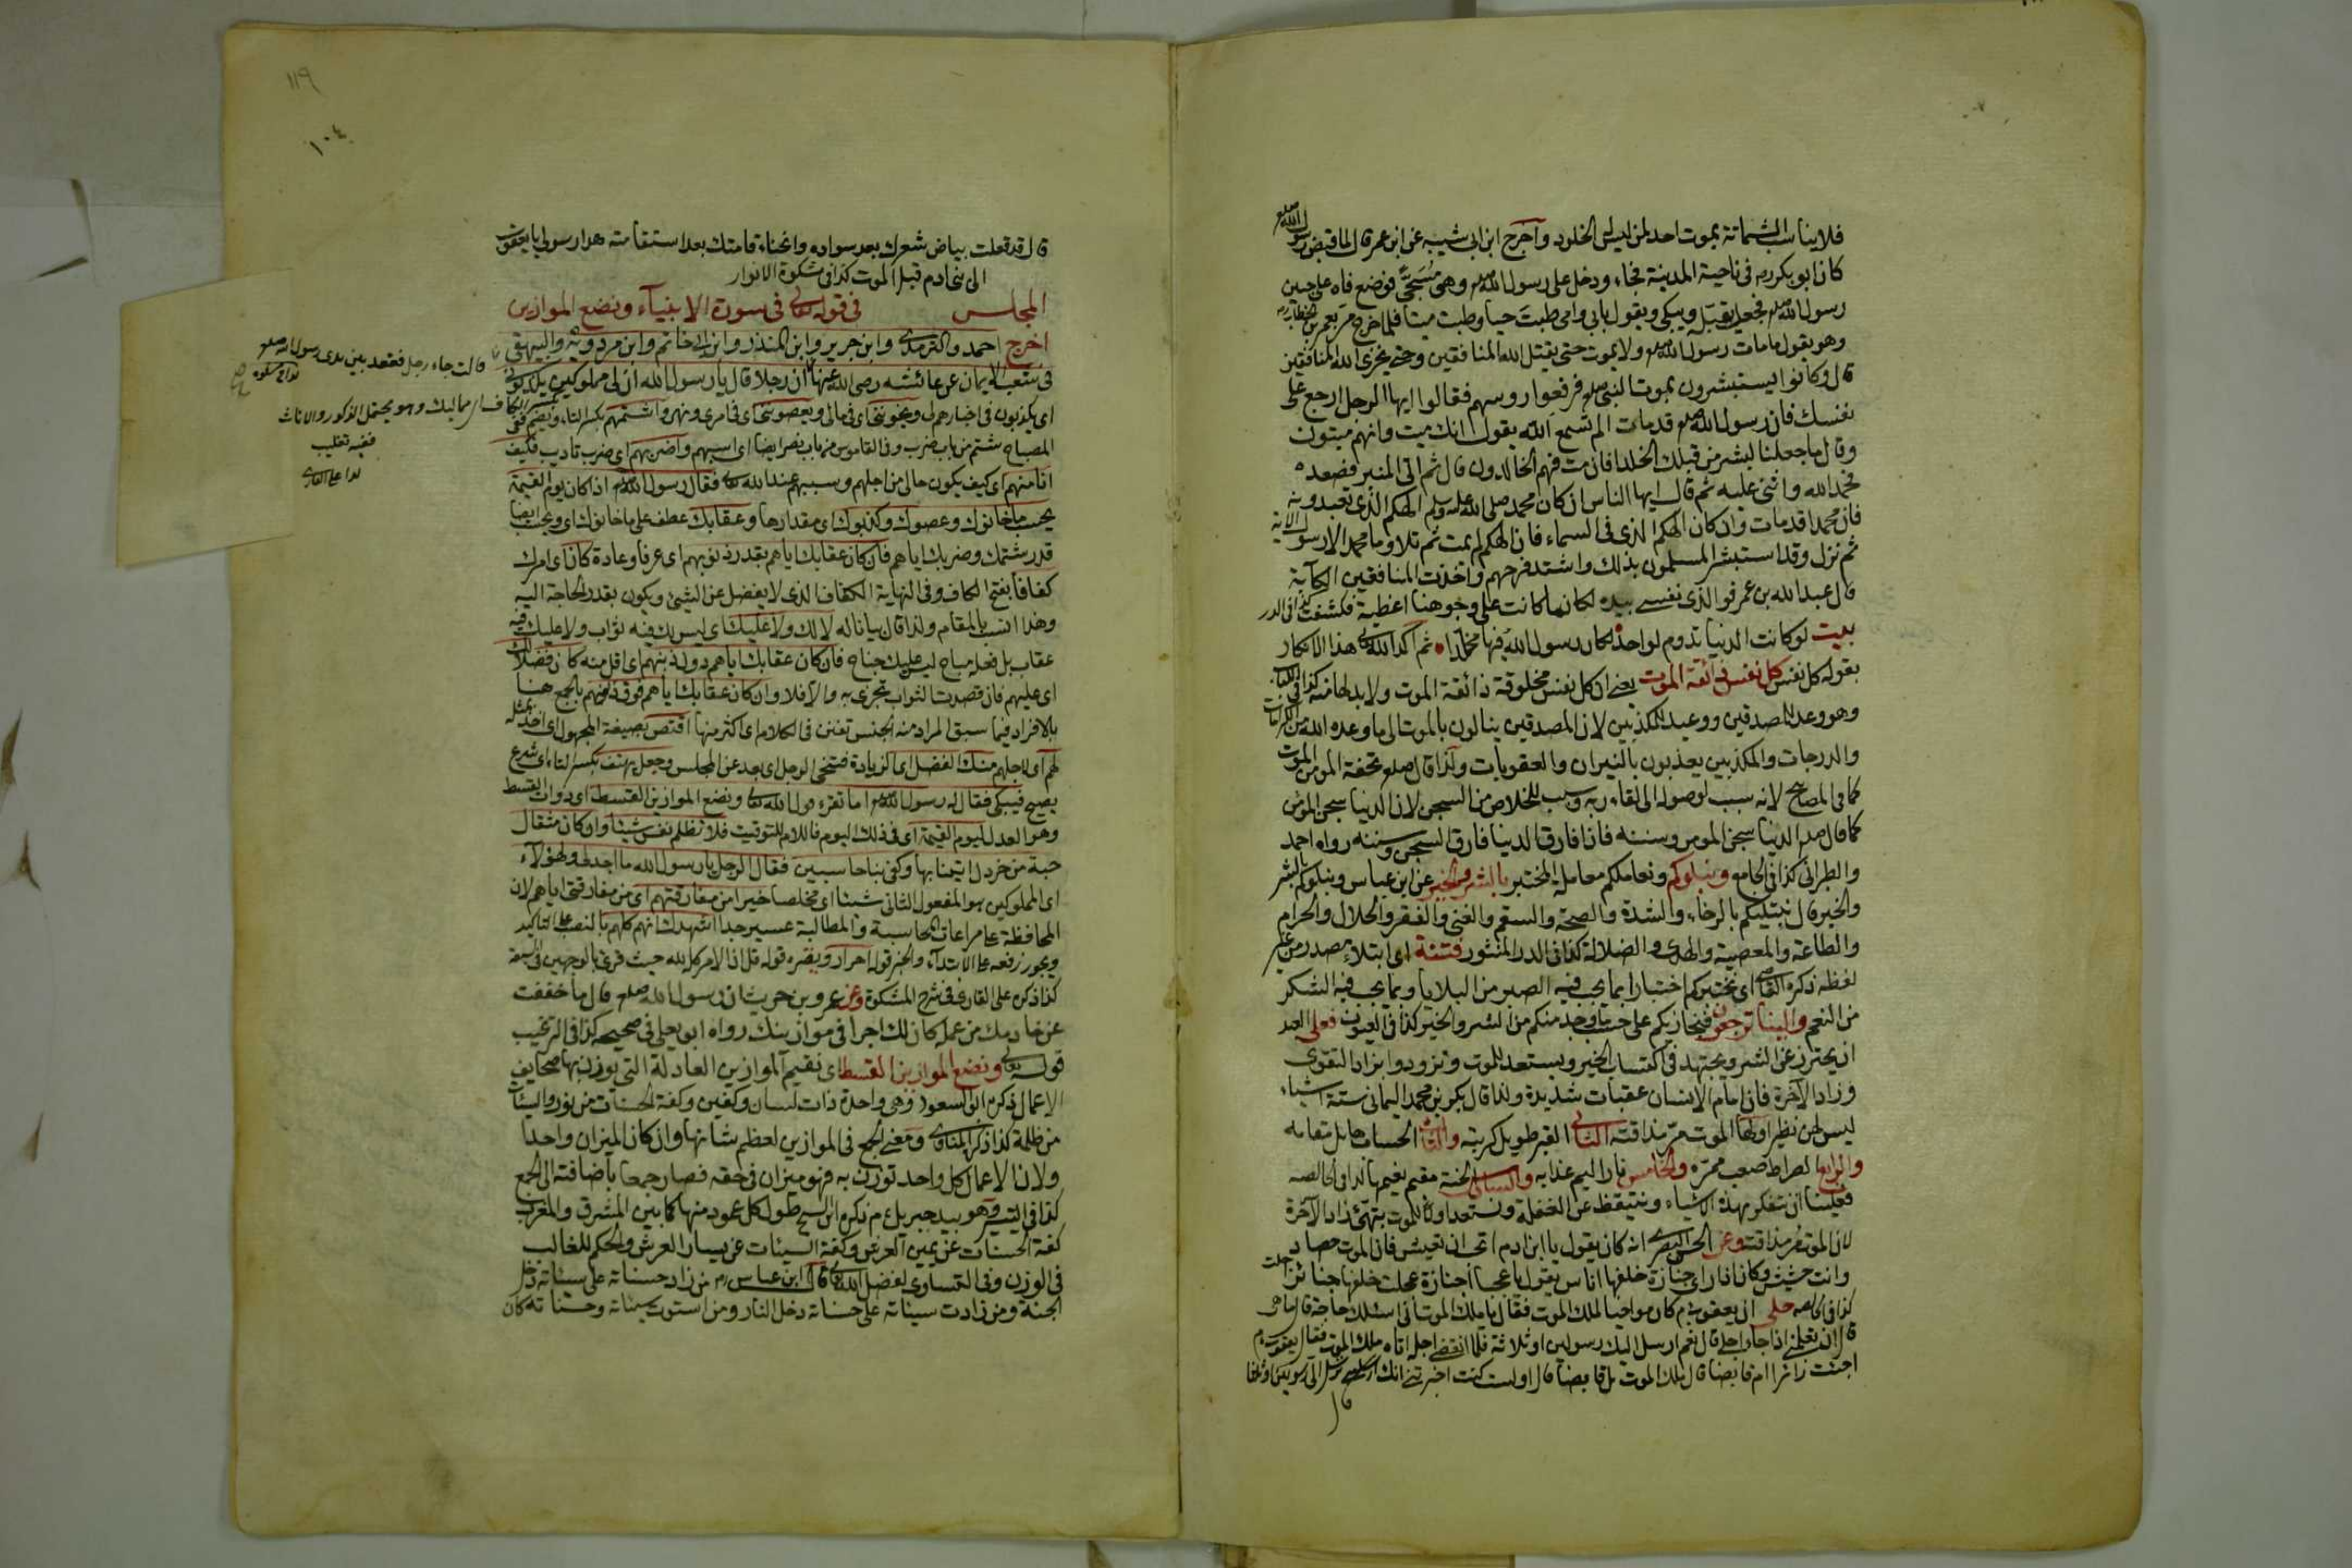 فلا يناسب الشماتة بموت احد لمن ليس الخلود واخرج ابن ابى شيبه عن ابن عمر قال لما قبض رسول الله صلعم
كان ابو بكر رض فى ناحية المدينة فجاء ودخل على رسول الله صلعم وهو مسجّى فوضع فاه على جبين
رسول الله صلعم فجعل يقبّله ويبكى ويقول بابى وامى طبت حيا وطبت ميتا فلما خرج مرّ بعمر بن الخطاب رض
وهو يقول ما مات رسول الله صلعم ولا يموت حتى يقتل الله المنافقين وحتى يخزى الله المنافقين
قال وكانوا يستبشرون بموت النبى صلعم فرفعوا رؤسهم فقالوا ايها الرجل ارجع على
نفسك فان رسول الله صلعم قد مات الم تسمع الله يقول انك ميت وانهم ميتون
وقال ما جعلنا لبشر من قبلك الخلد افان مت فهم الخالدون قال ثم اتى المنبر فصعده
فحمد الله واثنى عليه ثم قال ايها الناس ان كان محمد صلى الله عليه وسلم الهكم الذى تعبدونه
فان محمدا قد مات وان كان الهكم الذى فى السماء فان الهكم لم يمت ثم تلا وما محمد الا رسول الاية
ثم نزل وقد استبشر المسلمون بذلك واشتد فرحهم واخذت المنافقين الكآبة
قال عبد الله بن عمر فوالذى نفسى بيده لكانما كانت على وجوهنا اغطية فكشفت كذا فى الدر
بيت لو كانت الدنيا تدوم لواحد لكان رسول الله فيها مخلّدا ثم اكد الله تعالى هذا الانكار
بقوله كل نفس كل نفس ذائقة الموت يعنى ان كل نفس مخلوقة ذائقة الموت ولا بد لها منه كذا فى اللباب
وهو وعد للمصدقين ووعيد للمكذبين لان المصدقين ينالون بالموت الى ما وعده الله من الكرامات
والدرجات والمكذبين يعذبون بالنيران والعقوبات ولذا قال صلعم تحفة المؤمن الموت
كما فى المصابيح لانه سبب لوصوله الى لقاء ربه وسبب للخلاص من السجن لان الدنيا سجن المؤمن
كما قال صلعم الدنيا سجن المؤمن وسننه فاذا فارق الدنيا فارق السجن وسننه رواه احمد
والطبرانى كذا فى الجامع ونبلوكم ونعاملكم معاملة المختبر بالشر والخير عن ابن عباس ونبلوكم بالشر
والخير قال نبتليكم بالرخاء والشدة والصحة والسقم والغنى والفقر والحلال والحرام
والطاعة والمعصية والهدى والضلالة كذا فى الدر المنثور فتنة اى ابتلاء مصدر من غير
لفظه ذكره القاضى اى نختبركم اختبارا بما يجب فيه الصبر من البلايا وبما يجب فيه الشكر
من النعم والينا ترجعون فنجازيكم على حسب ما وجد منكم من الشر والخير كذا فى العيون فعلى العبد
ان يحترز عن الشر ويجتهد فى اكتساب الخير ويستعد للموت وتزودوا بزاد التقوى
وزاد الآخرة فان امام الانسان عقبات شديدة ولذا قال بكر بن محمد اليمانى ستة اشياء
ليس لهن نظير اولها الموت مرّ مذاقته الثانى القبر طويل كربته والثالث الحساب هايل مقامه
والرابع الصراط صعب ممرّه والخامس نار اليم عذابه والسادس الجنة مقيم نعيمها كذا فى الخالصه
فعلينا ان نتفكر بهذه الاشياء ونتيقظ عن الغفلة ونستعد للموت بتهئ زاد الآخرة
لان الموت مرّ مذاقته وعن الحسن البصرى انه كان يقول يا ابن ادم اتحب ان تعيش فان الموت حصاد
وانت حشيش وكان اذا راى جنازة خلفها اناس يقول يا عجبا اجنازة عجلت خلفها جنائز اجلت
كذا فى الخالصه حكى ان يعقوب عم كان مواخيا لملك الموت فقال يا ملك الموت انى اسئلك حاجة قال ما هى
قال ان تعلمنى اذا جاء اجلى قال نعم ارسل اليك رسولين او ثلاثة فلما انقضى اجله اتاه ملك الموت فقال يعقوب عم
اجئت زائرا ام قابضا قال ملك الموت بل قابضا قال اولست كنت اخبرتنى انك ترسل الى رسولين او ثلثا
قال
١١٩
١٠٤
قال قد فعلت بياض شعرك بعد سواده وانحناء قامتك بعد استقامته هذا رسولى يا يعقوب
الى بنى ادم قبل الموت كذا فى مشكوة الانوار
المجلس فى قوله تعالى فى سورة الانبياء ونضع الموازين
اخرج احمد والترمذى وابن جرير وابن المنذر وابن ابى حاتم وابن مردويه والبيهقى
فى شعب الايمان عن عائشه رضى الله عنها ان رجلا قال يا رسول الله ان لى مملوكين يكذبوننى
اى يكذبون فى اخبارهم لى ويخوننى اى فى مالى ويعصوننى اى فى امرى ونهى واشتمهم بكسر التاء ويضم ففى
المصباح شتم من باب ضرب وفى القاموس من باب نصر ايضا اى اسبهم واضربهم اى ضرب تاديب فكيف
انا منهم اى كيف يكون حالى من اجلهم وسببهم عند الله تعالى فقال رسول الله صلعم اذا كان يوم القيمة
يحسب ما خانوك وعصوك وكذبوك اى مقدارها وعقابك عطف على ما خانوك اى ويحسب ايضا
قدر شتمك وضربك اياهم فان كان عقابك اياهم بقدر ذنوبهم اى عرفا وعادة كان اى امرك
كفافا بفتح الكاف وفى النهاية الكفاف الذى لا يفضل عن الشئ ويكون بقدر الحاجة اليه
وهذا انسب بالمقام ولذا قال بيانا له لا لك ولا عليك اى ليس لك فيه ثواب ولا عليك فيه
عقاب بل فعله مباح ليس عليك جناح فان كان عقابك اياهم دون ذنبهم اى اقل منه كان فضلا لك
اى عليهم فان قصدت الثواب تجزى به والا فلا وان كان عقابك اياهم فوق ذنوبهم بالجمع هنا
بالافراد فيما سبق المراد منه الجنس تفنن فى الكلام اى اكثر منها اقتص بصيغة المجهول اى اخذ بمثله
لهم اى لاجلهم منك الفضل اى الزيادة فتنحى الرجل اى بعد عن المجلس وجعل يهتف بكسر التاء اى شرع
يصيح فيبكى فقال له رسول الله صلعم اما تقرء قول الله تعالى ونضع الموازين القسط اى ذوات القسط
وهو العدل ليوم القيمة اى فى ذلك اليوم فاللام للتوقيت فلا تظلم نفس شيئا وان كان مثقال
حبة من خردل اتينا بها وكفى بنا حاسبين فقال الرجل يا رسول الله ما اجد لى ولهؤلاء
اى المملوكين هو المفعول الثانى شيئا اى مخلصا خيرا من مفارقتهم اى من مفارقتى اياهم لان
المحافظة على مراعات المحاسبة والمطالبة عسير جدا اشهدك انهم كلهم بالنصب على التاكيد
ويجوز رفعه على الابتداء والخبر قوله احرار ونظيره قوله قل ان الامر كله لله حيث قرئ بالوجهين فى السبعة
كذا ذكره على القارى فى شرح المشكوة وعن عمرو بن حريث ان رسول الله صلعم قال ما خففت
عن خادمك من عمله كان لك اجرا فى موازينك رواه ابو يعلى فى صحيحه كذا فى الترغيب
قوله تعالى ونضع الموازين القسط اى نقيم الموازين العادلة التى يوزن بها صحايف
الاعمال ذكره ابو السعود وهى واحدة ذات لسان وكفين وكفة الحسنات من نور والسيئات
من ظلمة كذا ذكر المناوى ومعنى الجمع فى الموازين لعظم شانها وان كان الميزان واحدا
ولان الاعمال كل واحد توزن به فهو ميزان فى حقه فصار جمعا باضافته الى الجمع
كذا فى التيسير وهو بيد جبريل عم ذكره ابن السيح طول كل عمود منها كما بين المشرق والمغرب
كفة الحسنات عن يمين العرش وكفة السيئات عن يسار العرش والحكم للغالب
فى الوزن وفى التساوى لفضل الله تعالى قال ابن عباس رض من زاد حسناته على سيئاته دخل
الجنة ومن زادت سيئاته على حسناته دخل النار ومن استوت سيئاته وحسناته كان
قالت جاء رجل فقعد بين يدى رسول الله صلعم
بكسر الكاف اى مماليك وهو يحتمل الذكور والاناث
ففيه تغليب
كذا على القارى